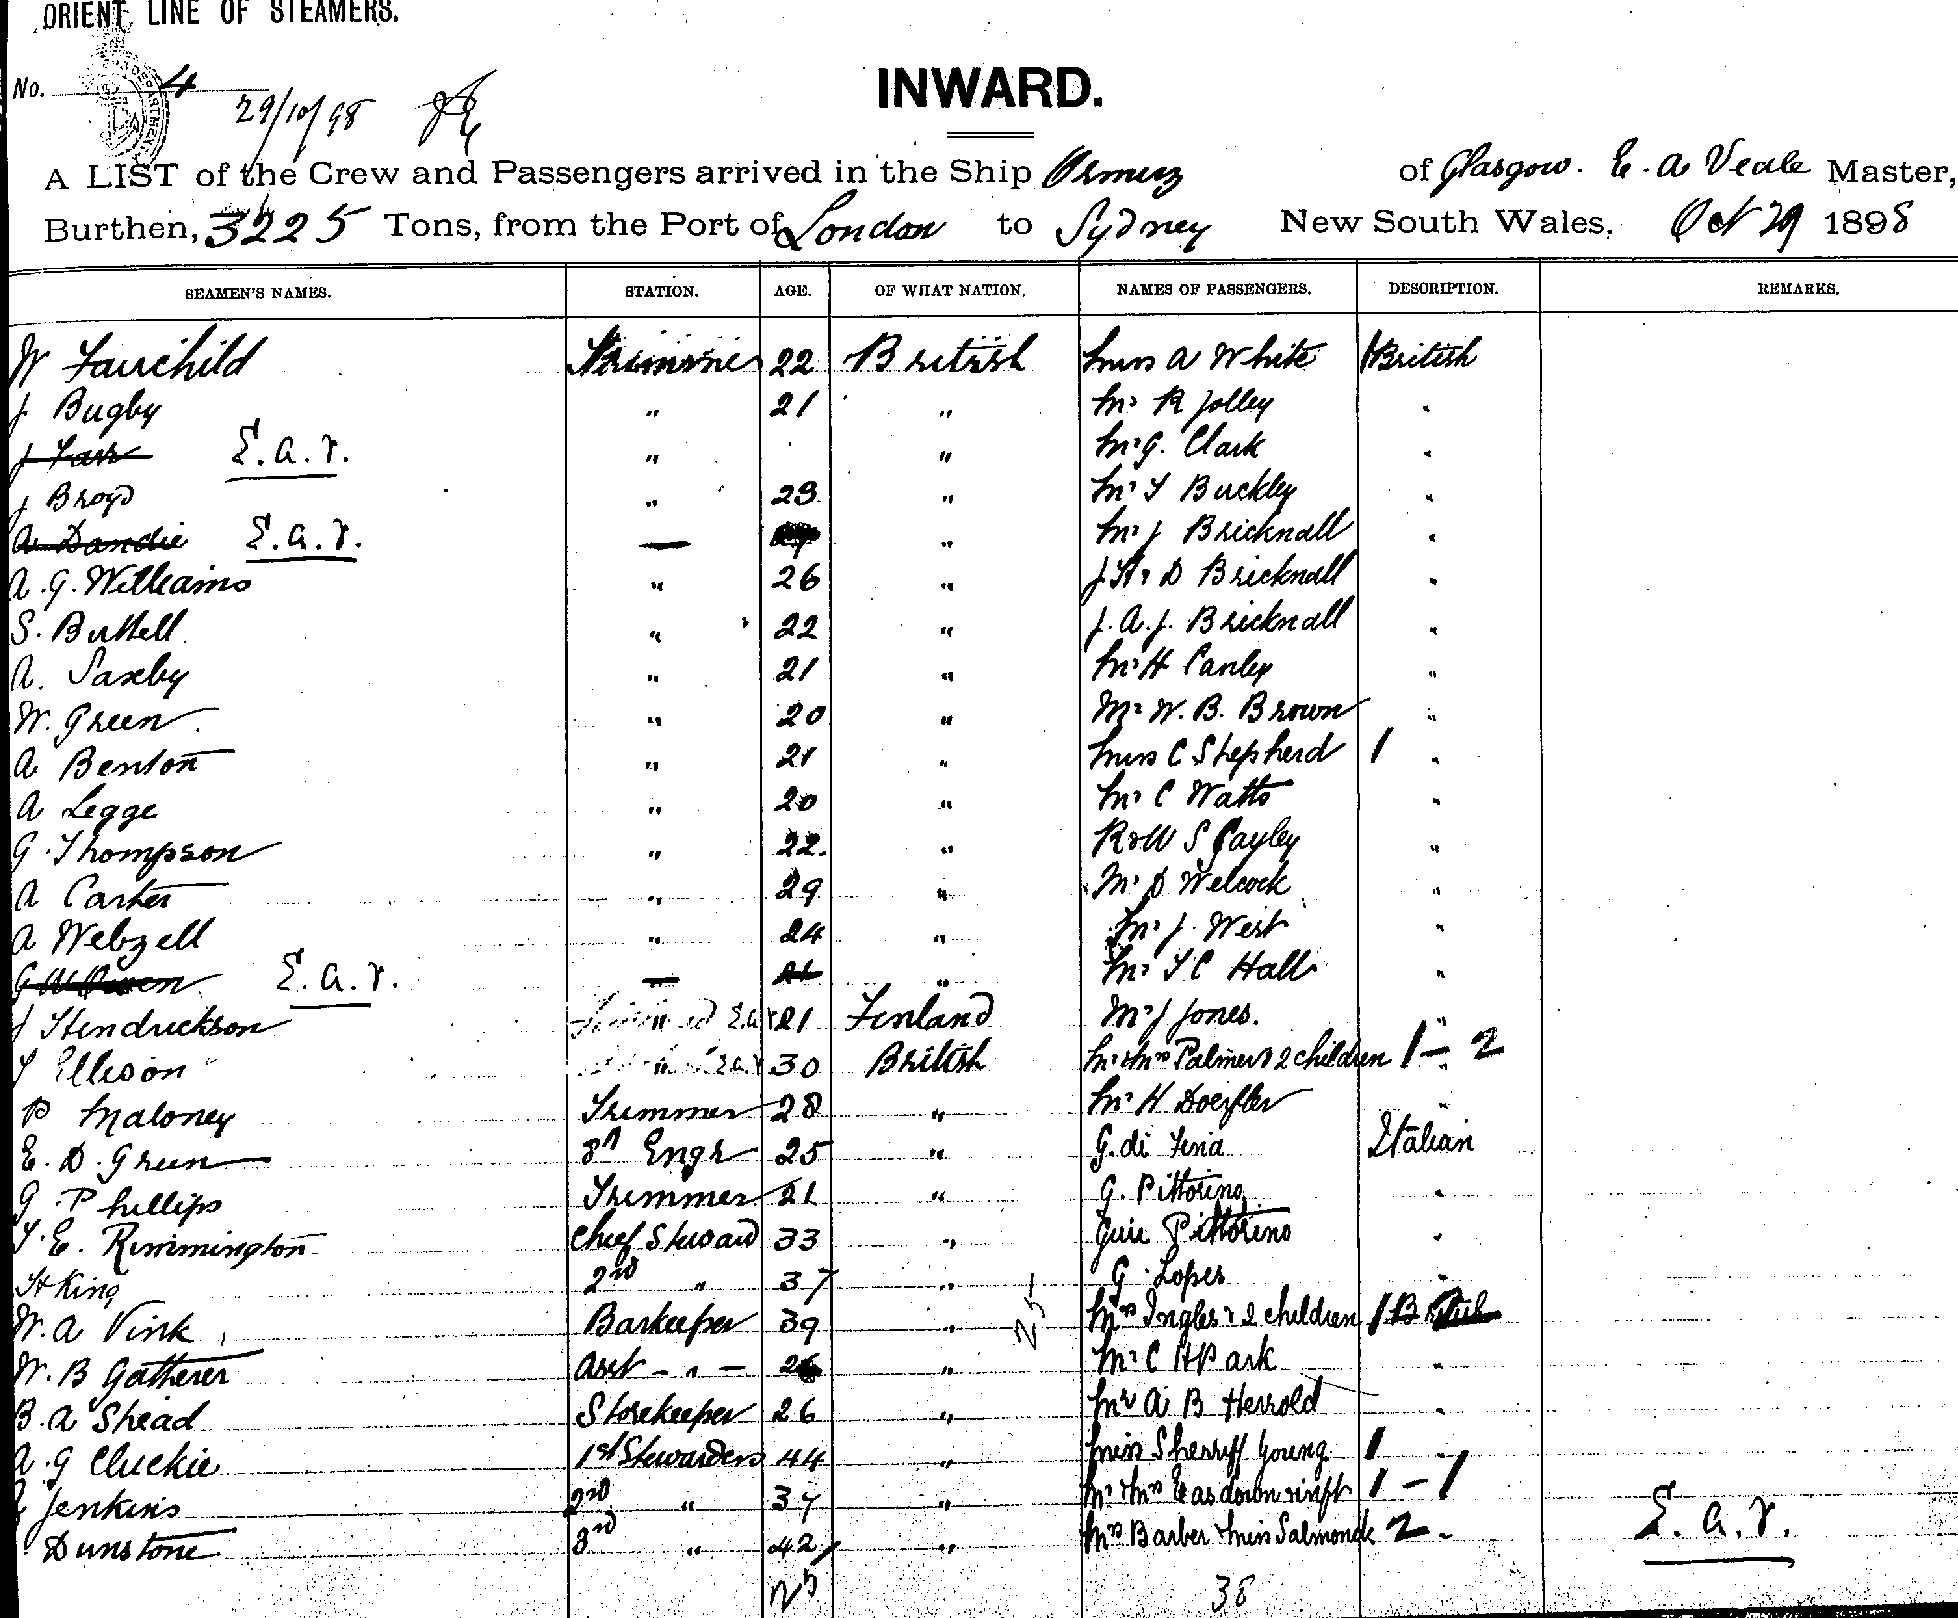 ORIENT LINE OF STEAMERS.
No. 4
29/10/98
INWARD.
A LIST of the Crew and Passengers arrived in the Ship Ormuz of Glasgow. E. A Veale Master,
Burthen, 3225 Tons, from the Port of London to Sydney New South Wales, Oct 29 1898
SEAMEN'S NAMES. STATION. AGE. OF WHAT NATION. NAMES OF PASSENGERS. DESCRIPTION. REMARKS.
W Fairchild Trimmer 22 British Miss A White 1 British
J Bugby " 21 " Mr R Jolley "
J Farr E.A.V. " " Mr G. Clark "
J Broyd " 23 " Mr T Buckley "
A Dandie E.A.V. — " Mr J Bricknall "
A. G. Williams " 26 " J. H. D Bricknall "
S. Buttell " 22 " J. A. J. Bricknall "
A. Saxby " 21 " Mr H Canley "
W. Green " 20 " Mr W. B. Brown "
A Benton " 21 " Miss C Shepherd 1 "
A Legge " 20 " Mr C Watts "
G. Thompson " 22. " S Cayley "
A Carter " 29 " Mr D Welcock "
A Webzell " 24 " Mr J. West "
G W Owen E.A.V. — 21 " Mr T C Hall "
J Hendrickson " 21 Finland Mr J Jones. "
T Ellison " 30 British Mr & Mrs Palmer & 2 children 1 - 2
P Maloney Trimmer 28 " Mr H Doerfler "
E. D. Green 8th Engr 25 " G. di Italian
G Phillips Trimmer 21 " G. Pittorino "
T. E. Rimmington Chief Steward 33 " Pittorino "
H King 2nd " 37 " G. Lopes "
W. A Vink Barkeeper 39 " Mrs Ingles & 2 children 1 British
W. B Gatherer Asst - " - 26 " Mr C H Park "
B. A Shead Storekeeper 26 " Mr A B Herrold "
A. G Cluckie 1st Stewardess 44 " Miss Sherriff Young 1 "
Jenkins 2nd " 37 " Mr & Mrs Easdown & inft 1 - 1
Dunstone 3rd " 42 " Mrs Barber & Miss Salmonde 2 - E.A.V.
25
25 38